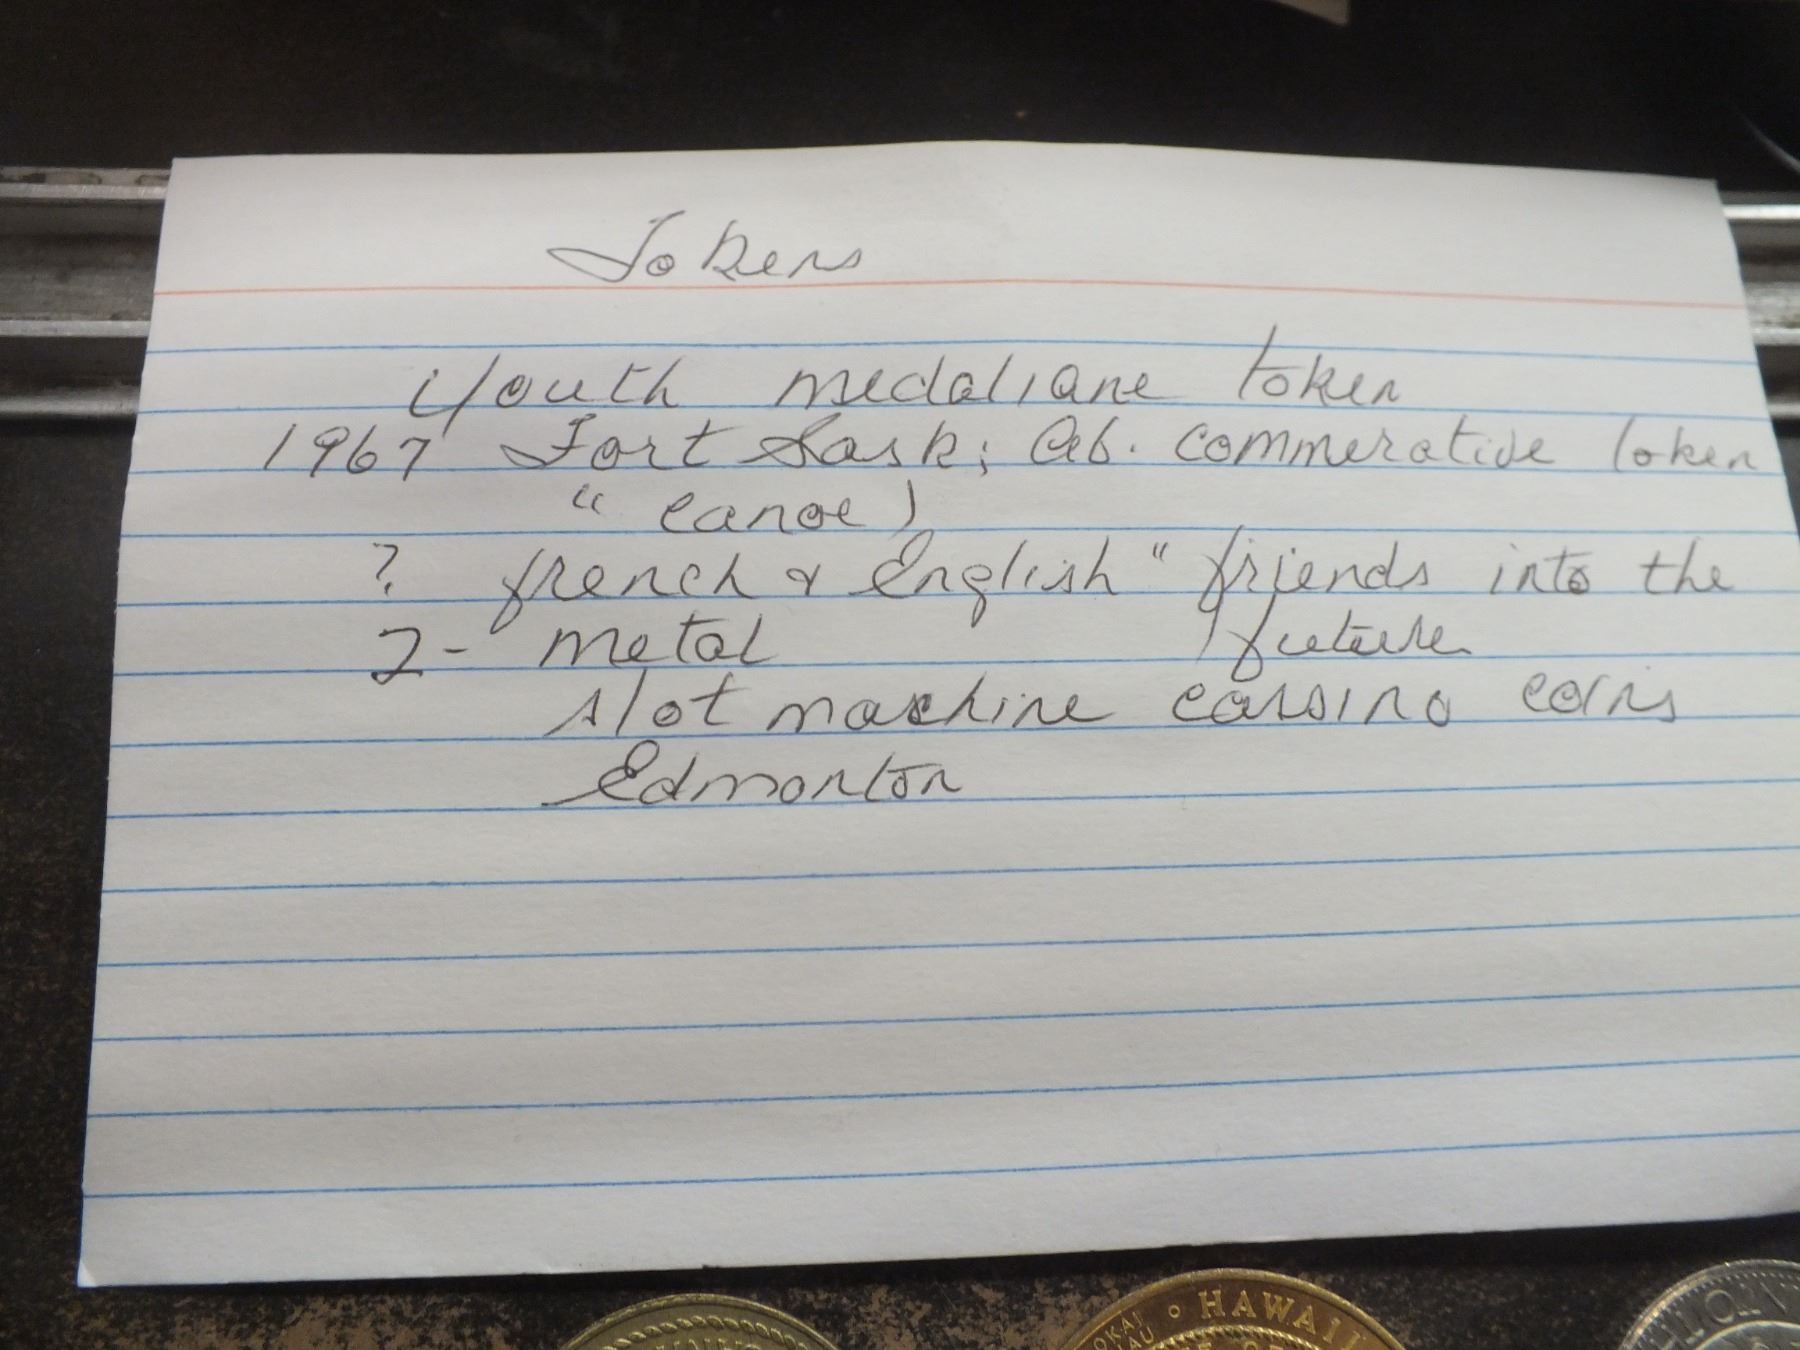 Tokens
Youth medaliane token
1967 Fort Sask; Ab. commerative token
" canoe)
? french & English " friends into the
future
2 - metal
slot machine cassino coins
Edmonton
HAWAII
OKAI